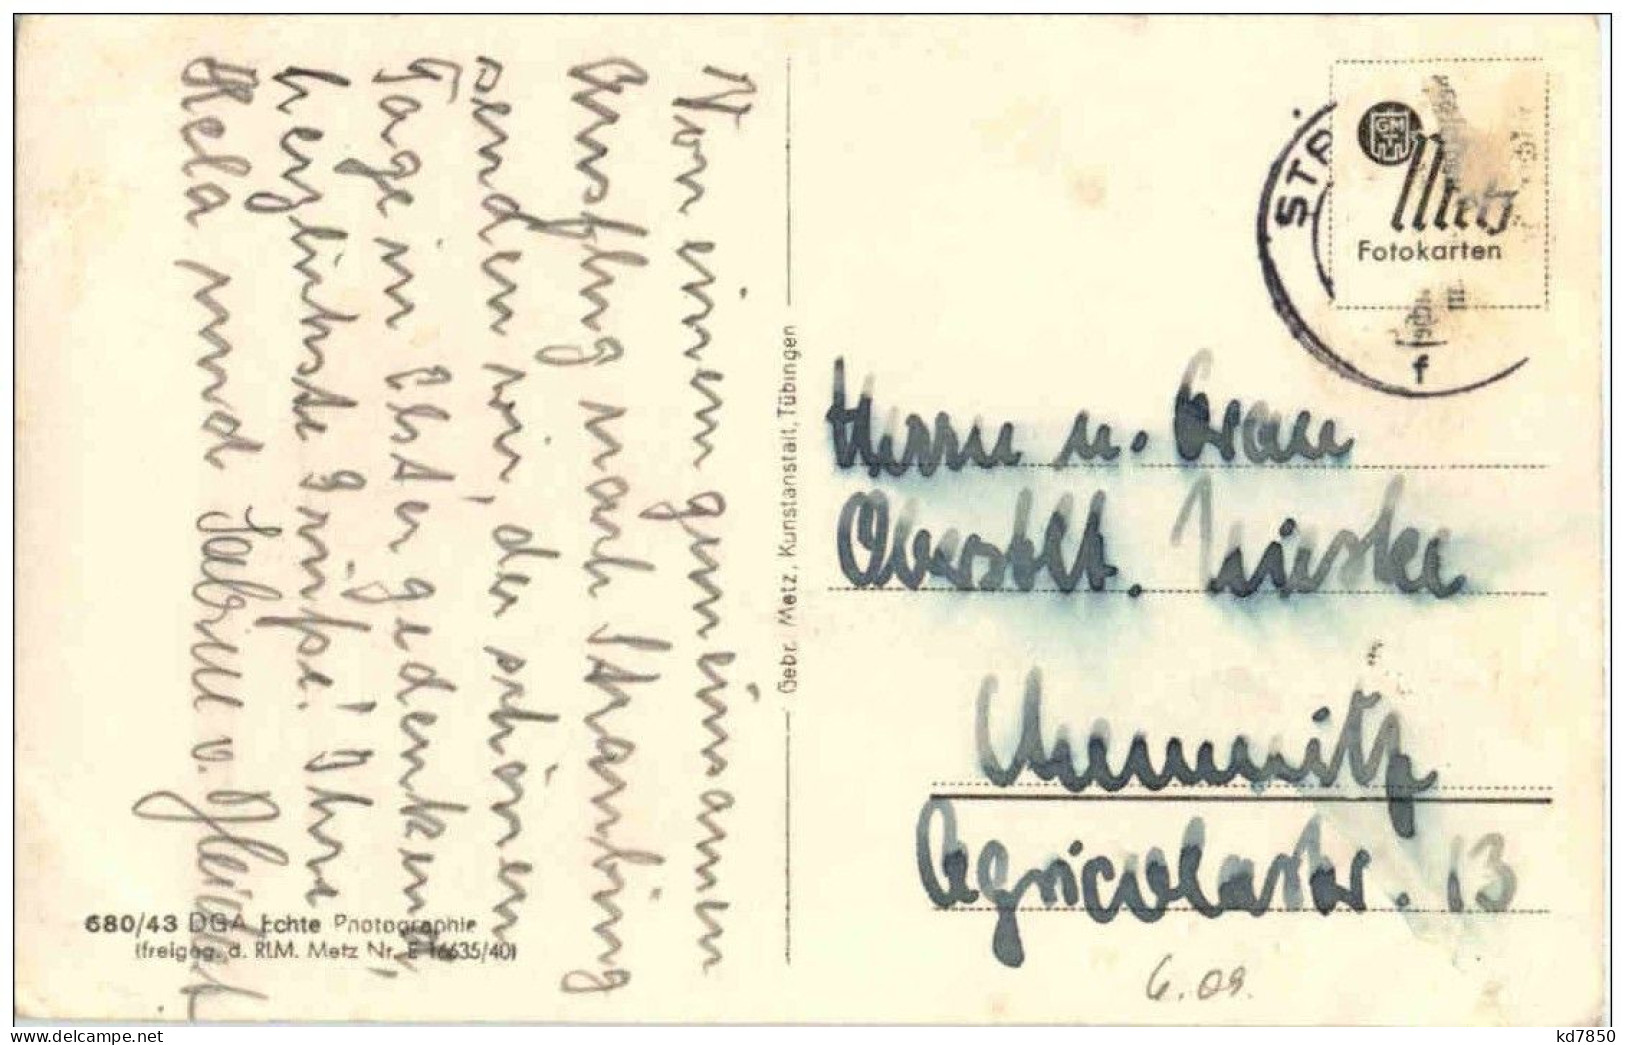 Von einem gemeinsamen
Ausflug nach Straßburg
senden wir, der schönen
Tage in Elster gedenkend,
herzlichste Grüße! Ihre
Hela und Sabine v.
Gebr. Metz, Kunstanstalt, Tübingen
680/43 DGA Echte Photographie
(freigeg. d. RLM. Metz Nr. E 16635/40)
STR
GM
Metz
Fotokarten
f
Herrn u. Frau
Oberstlt. Lieske
Chemnitz
Agricolastr. 13
6.09.
kd7850